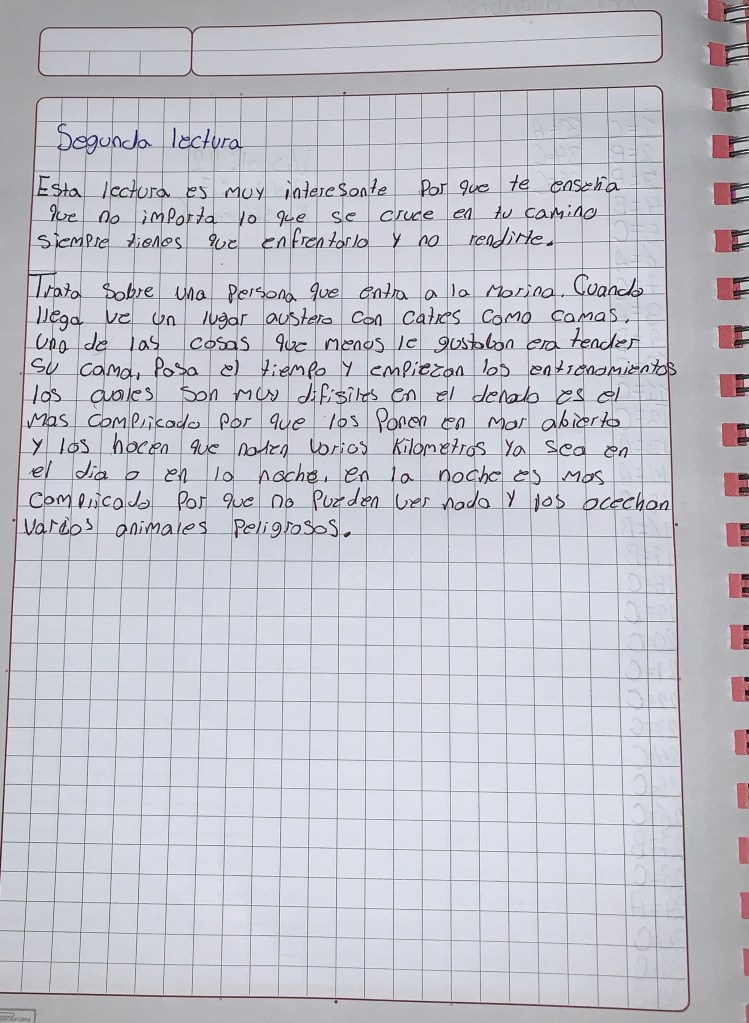 Segunda lectura
Esta lectura es muy interesante Por que te enseña
que no importa lo que se cruce en tu camino
siempre tienes que enfrentarlo y no rendirte.
Trata sobre una Persona que entra a la Marina. Cuando
llega ve un lugar austero con catres como camas.
una de las cosas que menos le gustaban era tender
su cama, Pasa el tiempo y empiezan los entrenamientos
los cuales son muy difisiles en el denado es el
mas complicado Por que los Ponen en mar abierto
y los hacen que naden varios Kilometros Ya sea en
el dia o en la noche, en la noche es mas
complicado Por que no Pueden ver nada y los acechan
varios animales Peligrosos.